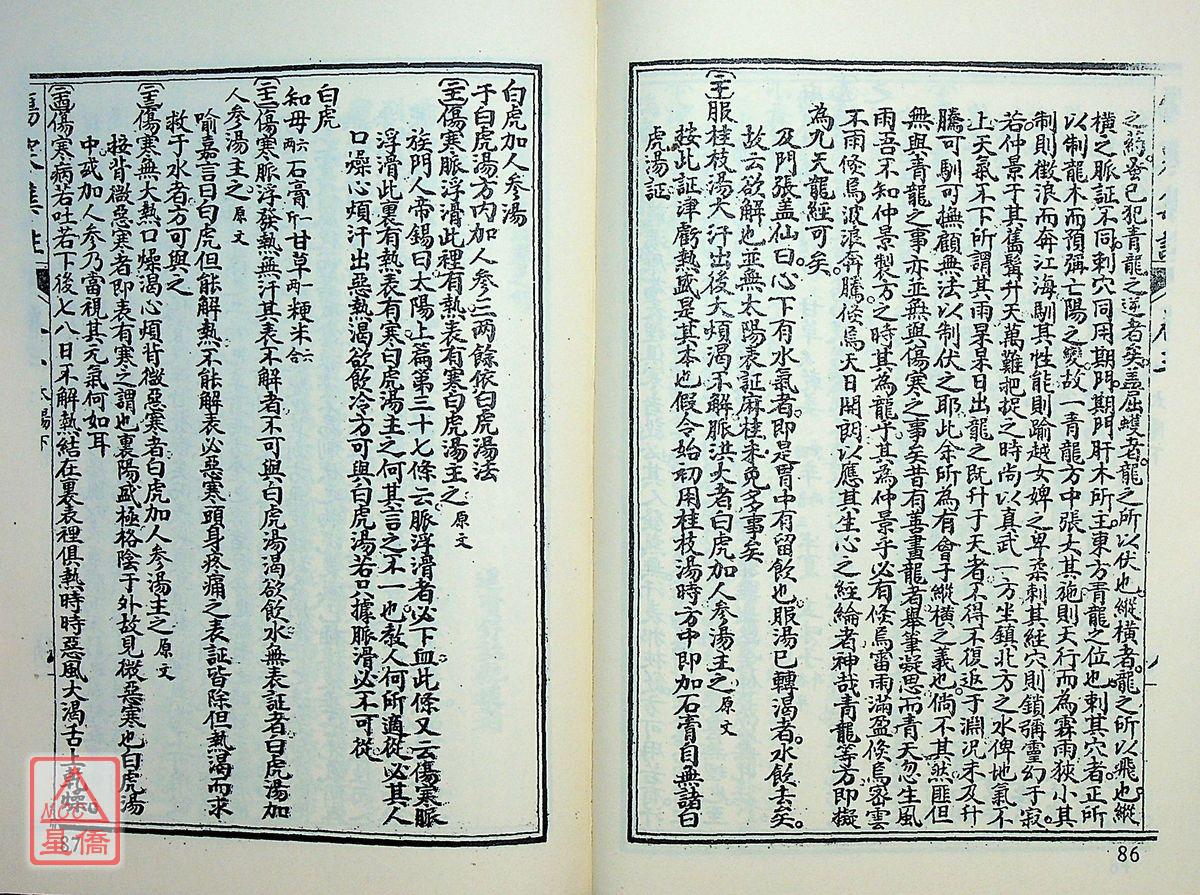 之藥蚤已犯青龍之逆者矣蓋屈蠖者龍之所以伏也縱橫者龍之所以飛也縱
橫之脈証不同刺穴同用期門期門肝木所主東方青龍之位也刺其穴者正所
以制龍木而預彌亡陽之變故一青龍方中張大其施則天行而為霖雨狹小其
制則微浪而奔江海馴其性能則踰越女婢之卑柔刺其經穴則鎖彌靈幻于寂
若仲景于其舊髯升天萬難把捉之時尚以真武一方坐鎮北方之水俾地氣不
上天氣不下所謂其雨杲杲日出龍之既升于天者不得不復返于淵況未及升
騰可馴可撫顧無法以制伏之耶此余所為有會于縱橫之義也倘不其狀匪但
無與青龍之事亦並無與傷寒之事矣昔有善畫龍者舉筆凝思而青天忽生風
雨吾不知仲景製方之時其為龍乎其為仲景乎必有倏烏雷雨滿盈倏烏密雲
不雨倏烏波浪奔騰倏烏天日開朗以應其生心之經綸者神哉青龍等方即擬
為九天龍經可矣
及門張盖仙曰心下有水氣者即是胃中有留飲也服湯已轉渴者水飲去矣
故云欲解也並無太陽表証麻桂未免多事矣
服桂枝湯大汗出後大煩渴不解脈洪大者白虎加人參湯主之原文
按此証津虧熱盛是其本也假令始初用桂枝湯時方中即加石膏自無諸白
虎湯証
86
白虎加人參湯
于白虎湯方內加人參三兩餘依白虎湯法
傷寒脈浮滑此裡有熱表有寒白虎湯主之原文
族門人帝錫曰太陽上篇第三十七條云脈浮滑者必下血此條又云傷寒脈
浮滑此裏有熱表有寒白虎湯主之何其言之不一也教人何所適從必其人
口燥心煩汗出惡熱渴欲飲冷方可與白虎湯若只據脈滑必不可從
白虎
知母六兩石膏一斤甘草二兩粳米六合
傷寒脈浮發熱無汗其表不解者不可與白虎湯渴欲飲水無表証者白虎湯加
人參湯主之原文
喻嘉言曰白虎但能解熱不能解表必惡寒頭身疼痛之表証皆除但熱渴而求
救于水者方可與之
傷寒無大熱口燥渴心煩背微惡寒者白虎加人參湯主之原文
按背微惡寒者即表有寒之謂也裏陽盛極格陰于外故見微惡寒也白虎湯
中或加人參乃當視其元氣何如耳
傷寒病若吐若下後七八日不解熱結在裏表裡俱熱時時惡風大渴舌上乾燥
太陽下
87
MCC
星僑